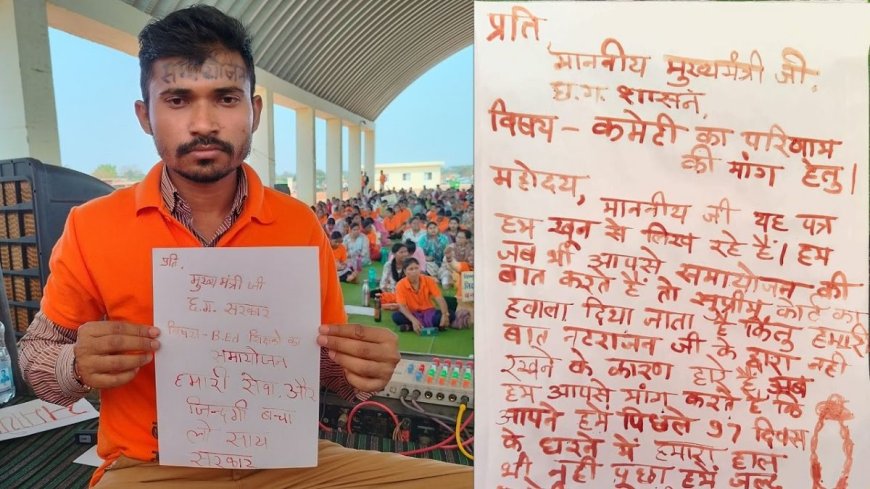 समायोजन
प्रति,
मुख्य मंत्री जी
छ.ग. सरकार
विषय - B.Ed शिक्षकों का
समायोजन
हमारी सेवा और
जिन्दगी बचा
लो साय
सरकार
प्रति,
माननीय मुख्यमंत्री जी,
छ.ग. शासन,
विषय - कमेटी का परिणाम
की मांग हेतु।
महोदय,
माननीय जी यह पत्र
हम खून से लिख रहे हैं। हम
जब भी आपसे समायोजन की
बात करते हैं तो सुप्रीम कोर्ट का
हवाला दिया जाता है किंतु हमारी
बात नटराजन जी के द्वारा नही
रखने के कारण हारे हैं अब
हम आपसे मांग करते हैं कि
आपने हमें पिछले 97 दिवस
के धरने में हमारा हाल
भी नहीं पूछा हमें जल्द